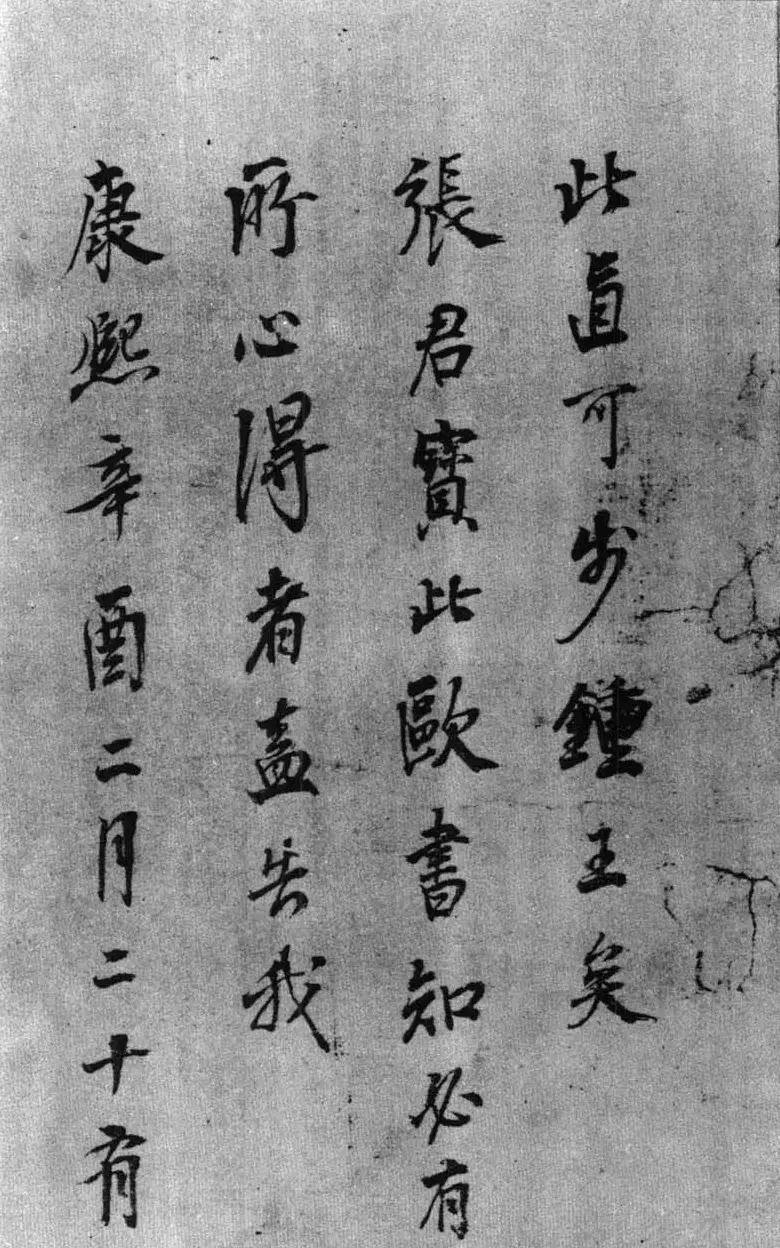 此直可步鍾王矣
張君寶此歐書知必有
所心得者盍告我
康熙辛酉二月二十有